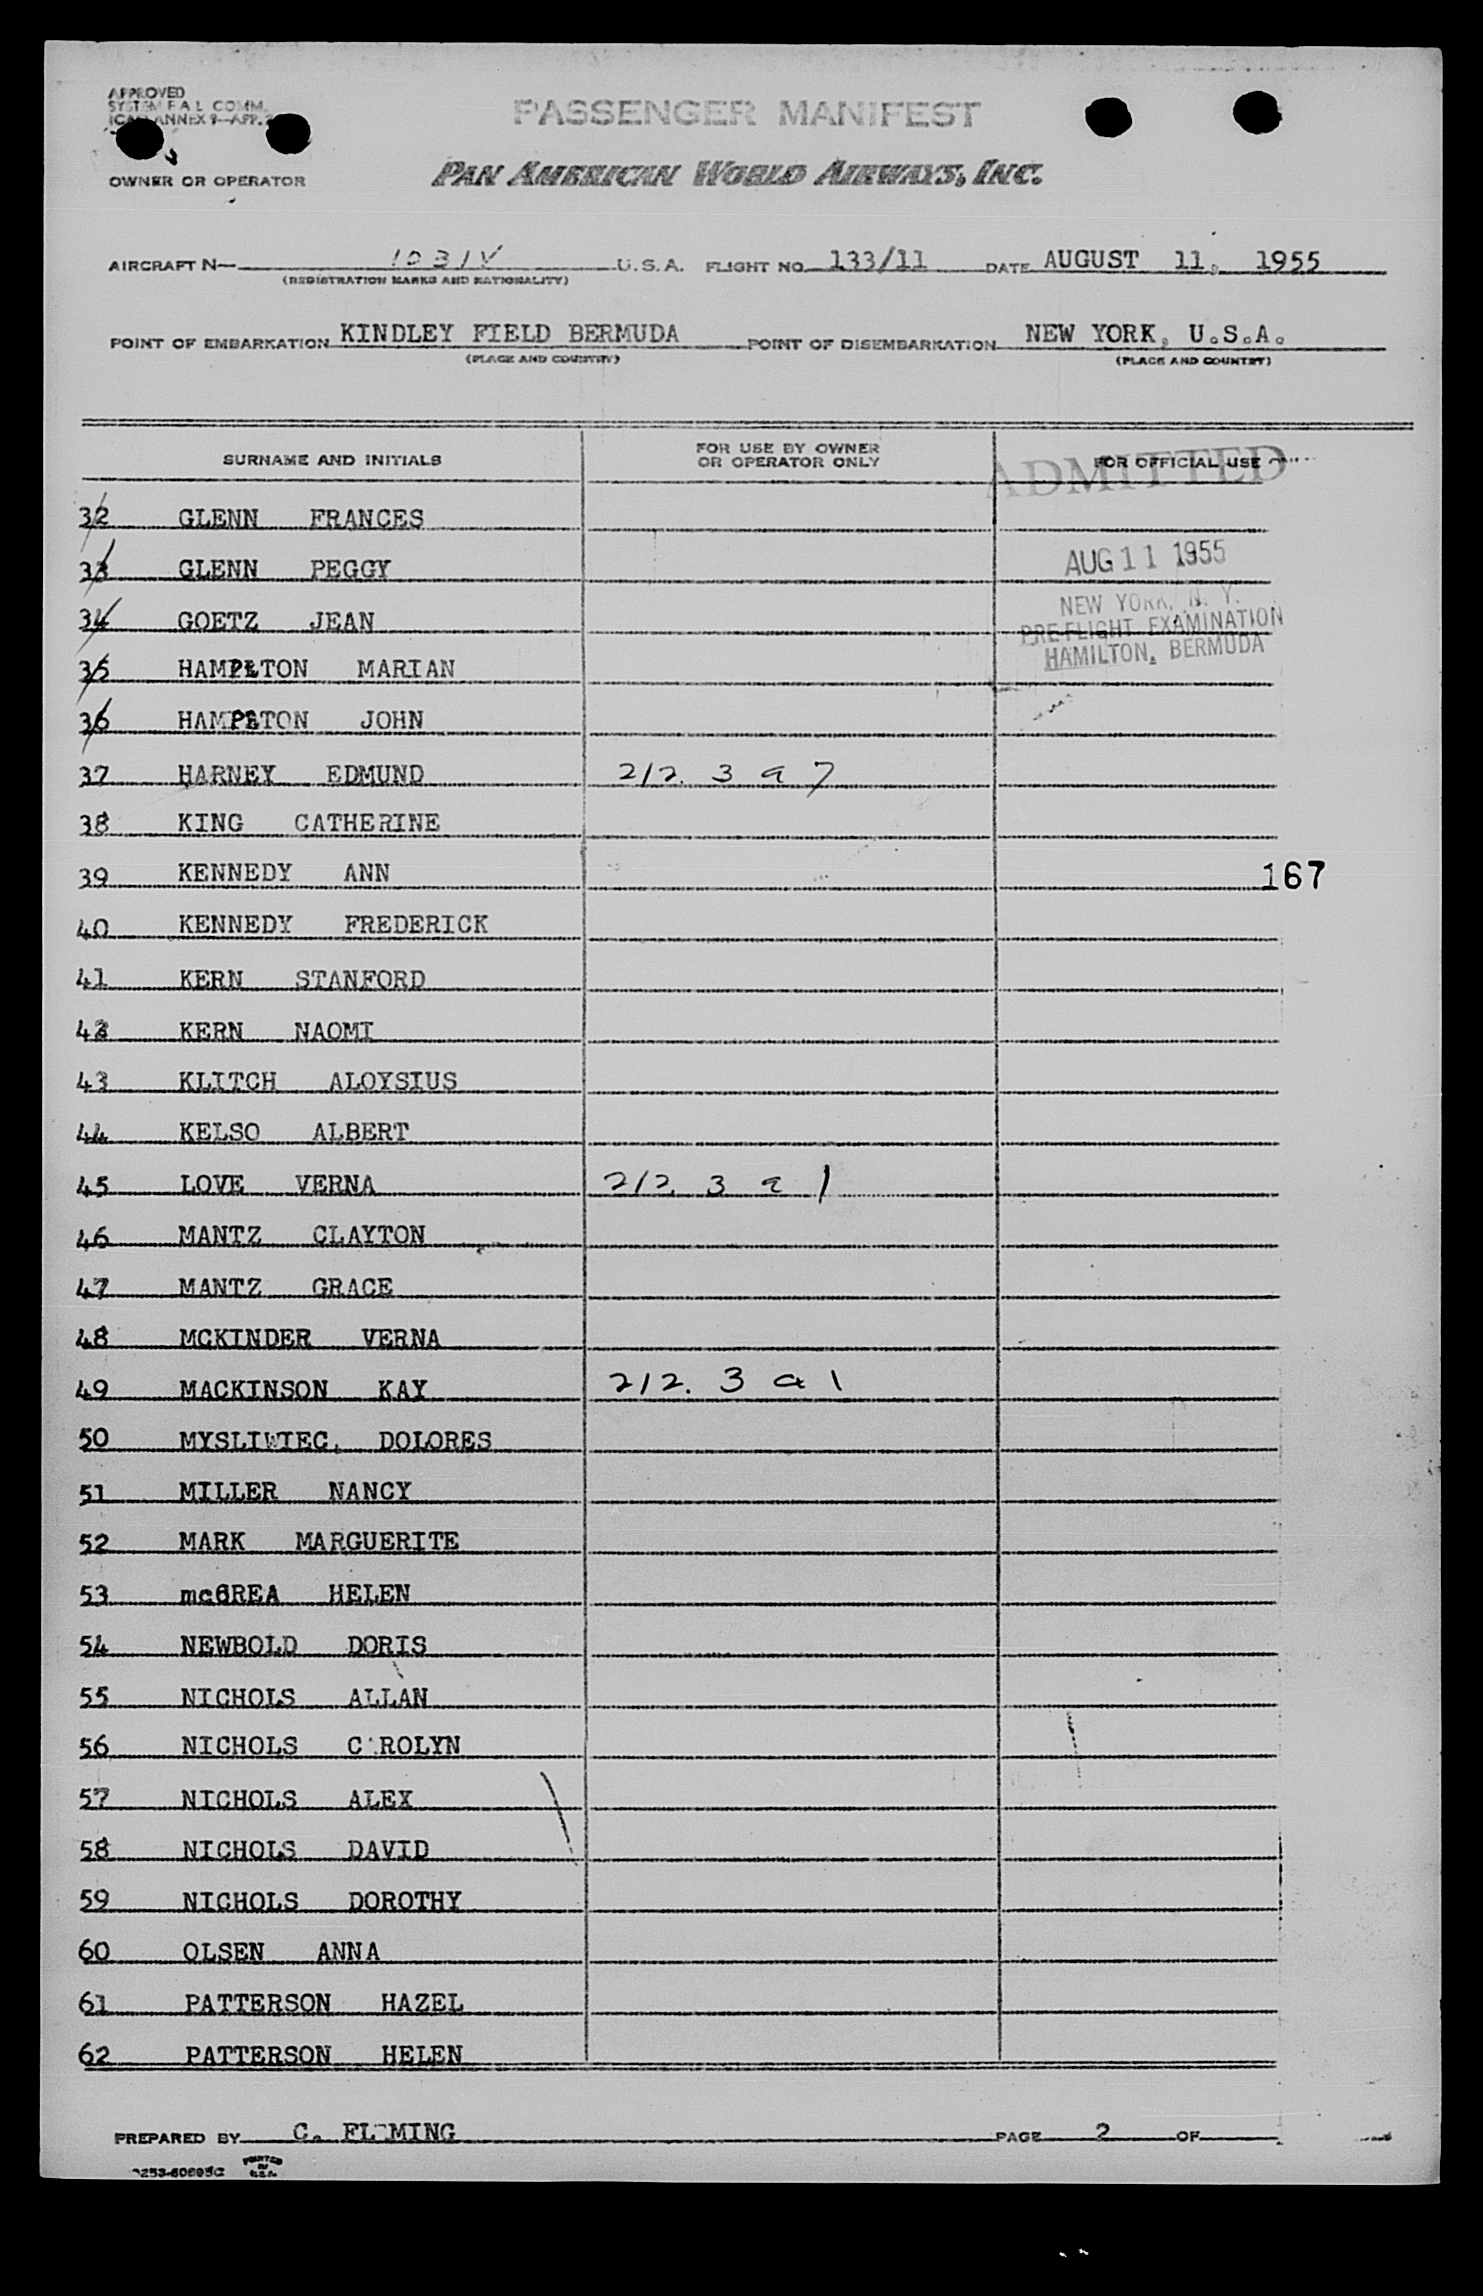 APPROVED
SYSTEM F A L COMM.
ICAO ANNEX 9—APP.
PASSENGER MANIFEST
PAN AMERICAN WORLD AIRWAYS, INC.
OWNER OR OPERATOR
AIRCRAFT N— 1031V U.S.A. FLIGHT NO. 133/11 DATE AUGUST 11, 1955
(REGISTRATION MARKS AND NATIONALITY)
POINT OF EMBARKATION KINDLEY FIELD BERMUDA POINT OF DISEMBARKATION NEW YORK, U.S.A.
(PLACE AND COUNTRY) (PLACE AND COUNTRY)
SURNAME AND INITIALS FOR USE BY OWNER OR OPERATOR ONLY FOR OFFICIAL USE
ADMITTED
32 GLENN FRANCES
AUG 11 1955
33 GLENN PEGGY
NEW YORK, N. Y.
34 GOETZ JEAN
PRE-FLIGHT EXAMINATION
HAMILTON, BERMUDA
35 HAMPTON MARIAN
36 HAMPTON JOHN
37 HARNEY EDMUND 212. 3 a 7
38 KING CATHERINE
39 KENNEDY ANN 167
40 KENNEDY FREDERICK
41 KERN STANFORD
42 KERN NAOMI
43 KLITCH ALOYSIUS
44 KELSO ALBERT
45 LOVE VERNA 212. 3 a 1
46 MANTZ CLAYTON
47 MANTZ GRACE
48 MCKINDER VERNA
49 MACKINSON KAY 212. 3 a 1
50 MYSLIWIEC, DOLORES
51 MILLER NANCY
52 MARK MARGUERITE
53 mcCREA HELEN
54 NEWBOLD DORIS
55 NICHOLS ALLAN
56 NICHOLS C ROLYN
57 NICHOLS ALEX
58 NICHOLS DAVID
59 NICHOLS DOROTHY
60 OLSEN ANNA
61 PATTERSON HAZEL
62 PATTERSON HELEN
PREPARED BY C. FLEMING PAGE 2 OF
PRINTED IN U.S.A.